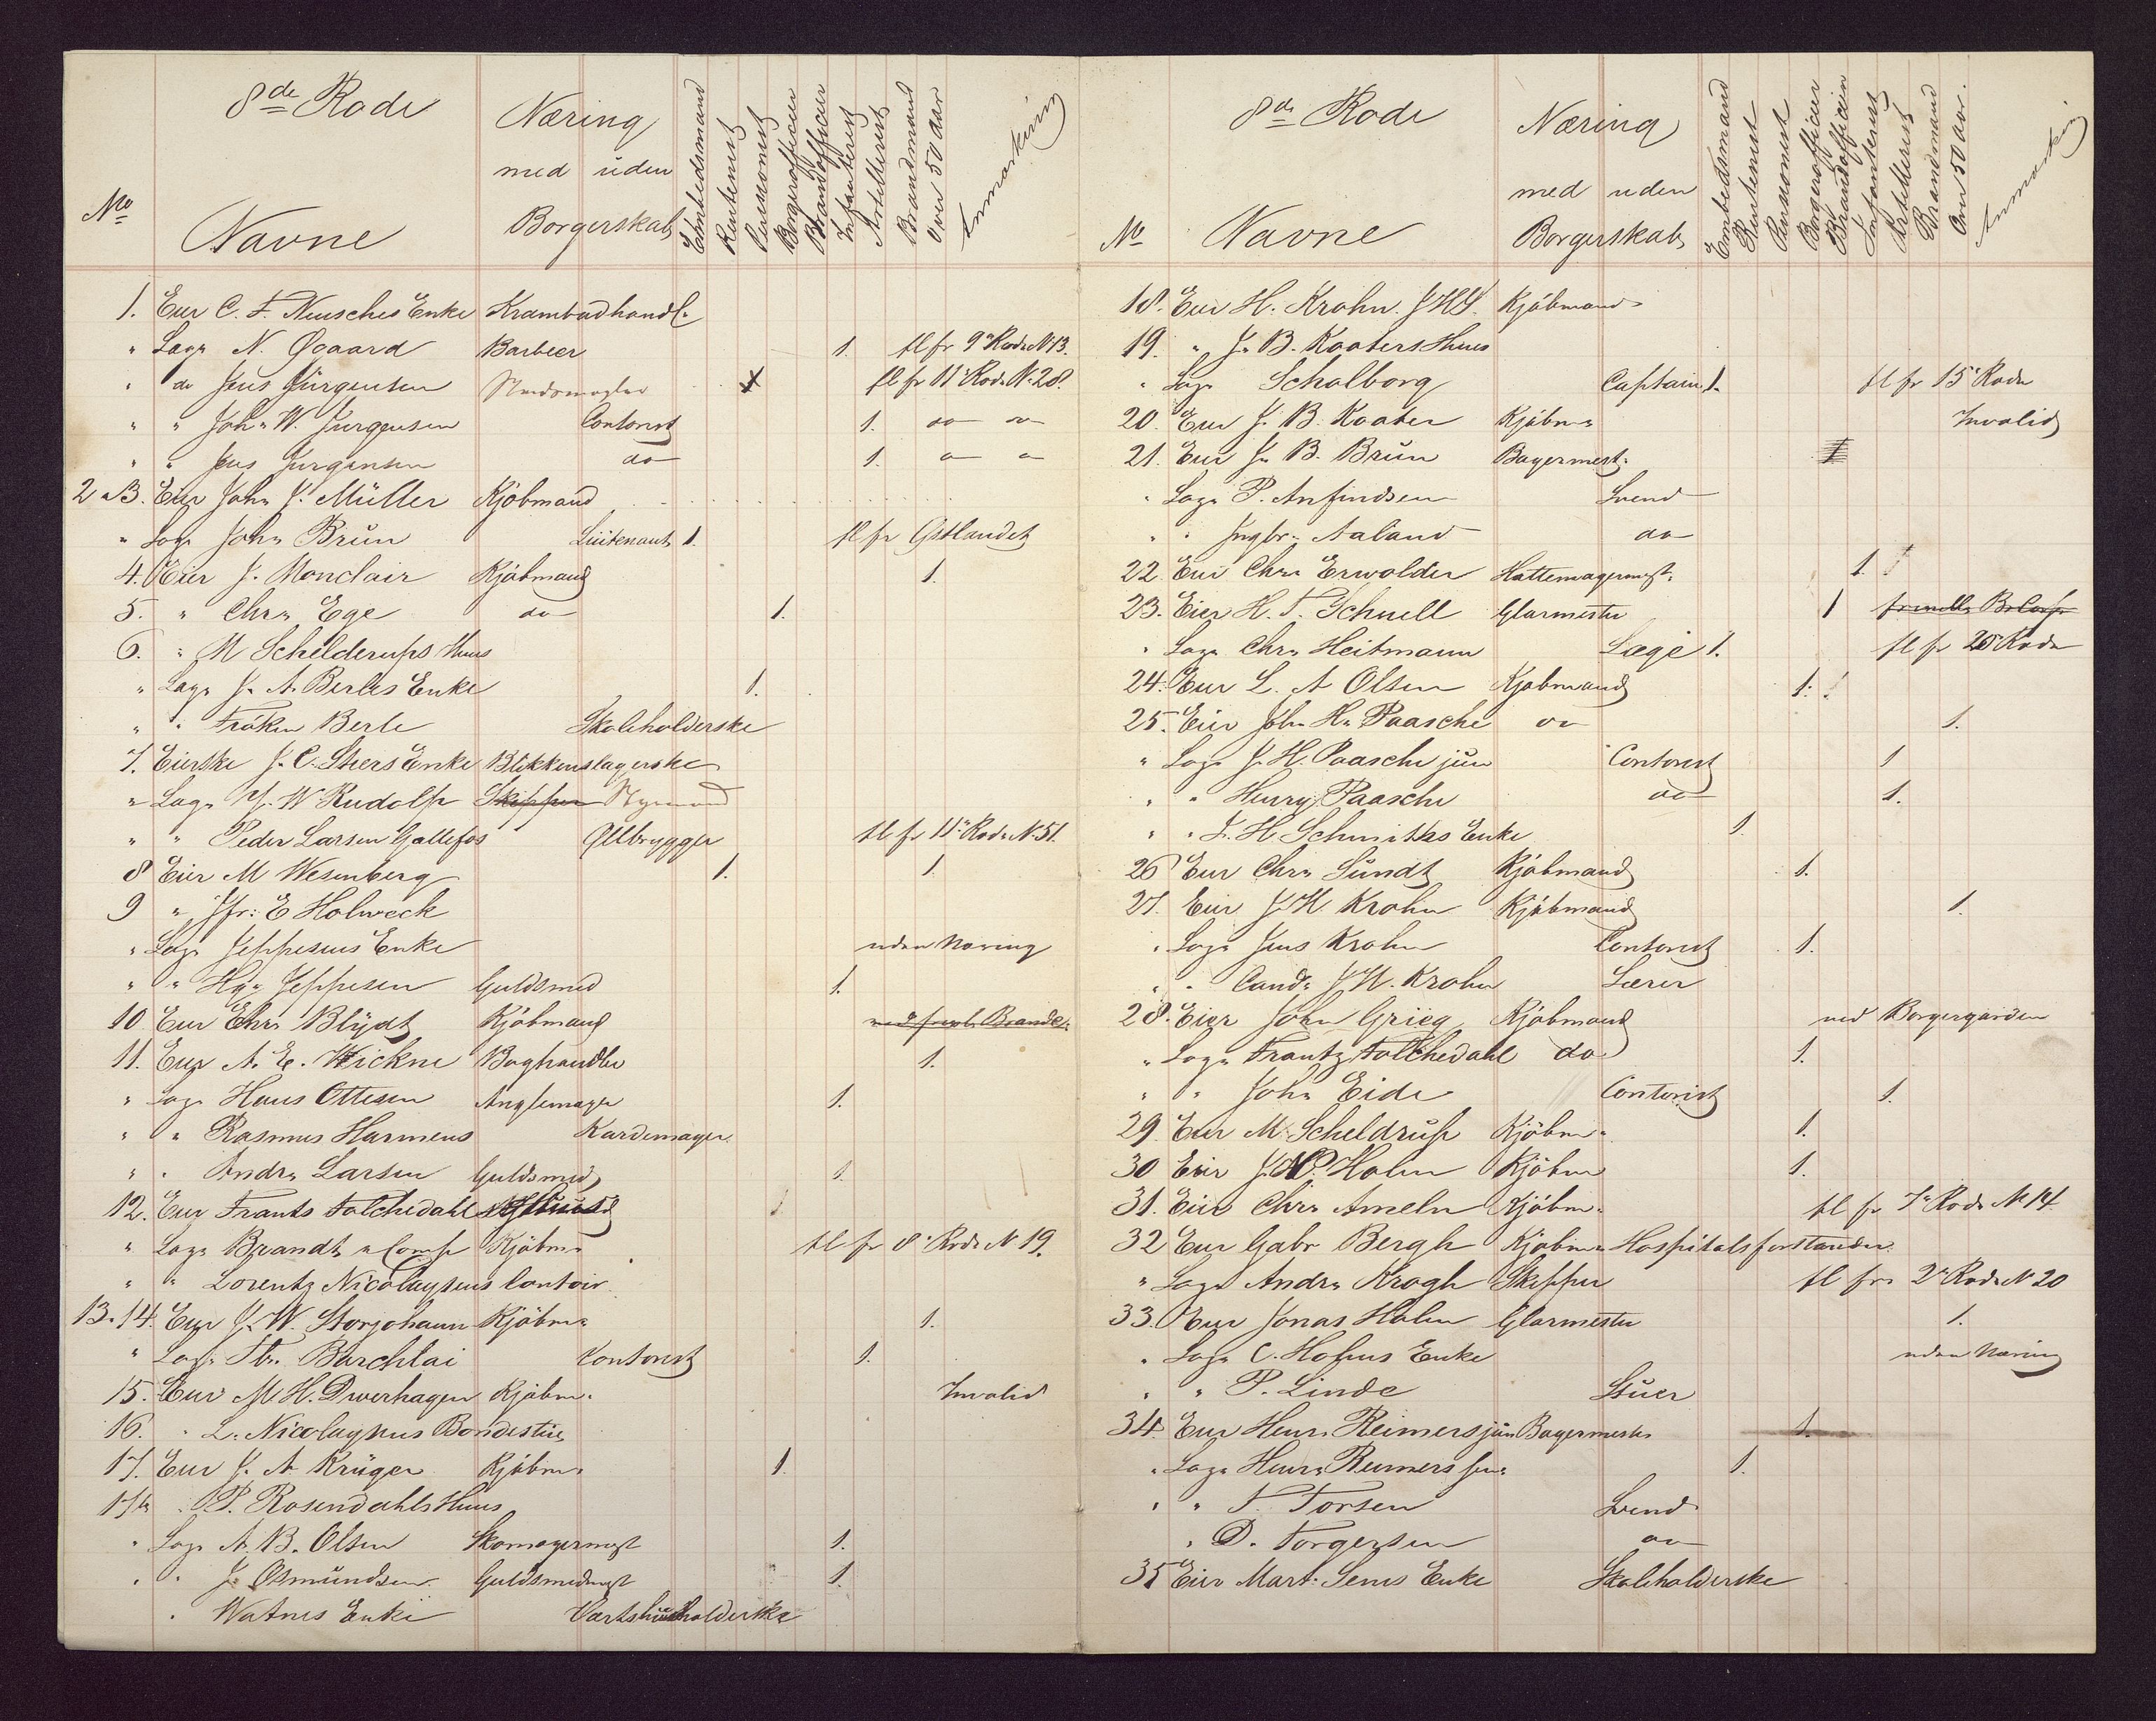 8de Rode
Næring
med uden
Borgerskab
No
Navne
Embedsmand
Rentenist
Pensionist
Borgerofficier
Brandofficier
Infanterist
Artellerist
Brandmand
Over 50 aar
Anmærkning
1. Eier C. F. Neusches Enke Krambodhandl:
" Logr N. Øgaard Barbeer 1. fl fr 9de Rode N 13.
" do Jens Jürgensen x fl fr 11te Rode N. 28.
" " John W. Jürgensen Contorist 1. do do
" " Jens Jürgensen do 1. " "
2 & 3. Eier John J. Müller Kjöbmand
" Logr John Brün Lüitenant 1. fl fr Østlandet
4. Eier J. Monclair Kjöbmand 1.
5. " Chrn Ege do 1.
6. " M Schilderups Huus
" Logr J. A. Berles Enke 1.
" " Fröken Berle Skoleholderske
7. Eierske J. C. Stiers Enke Blikkenslagerske
" Logr J. W Rudolph Skipper Styrmand
" " Peder Larsen Gallefos Ølbrygger fl fr 11te Rode N. 51.
8 Eier M Wesenberg 1. 1.
9 " Jfr: E Holweck
" Logr Jeppesens Enke uden Næring
" " Hgr Jeppesen Guldsmed 1.
10 Eier Chrn Blÿdt Kjöbmand
11. Eier A. E. Wickne Boghandler 1.
" Logr Hans Ottesen Anglemager 1.
" " Rasmus Harmens Kardemager
" " Andrs Larsen Guldsmed 1.
12. Eier Frants Foltchedahl
" Logr Brandt & Comp Kjöbm: fl fr 8de Rode N 19.
" " Lorentz Nicolaysens Contoir
13. 14. Eier J. W. Storjohann Kjöbm:
" Logr Burchlai Contorist 1.
15. Eier M. H. Dwerhagen Kjöbm. Invalid
16. " L. Nicolaysens Bondestue
17. Eier J. A. Krüger Kjöbm: 1.
17b P. Rosendahls Huus
" Logr A. B. Olsen Skomagermest 1.
" " J. Osmündsen Guldsmedmest 1.
" Watnes Enke Vartshüüsholderske
8de Rode
Næring
med uden
Borgerskab
No
Navne
Embedsmand
Rentenist
Pensionist
Borgerofficier
Brandofficier
Infanterist
Artellerist
Brandmand
Over 50 aar.
Anmærkning
18. Eier H. Krohn. J.H.S. Kjöbmand
19. " J. B. Kaaters Huus
" Logr Schalborg Captain 1. fl fr 15de Rode
20. Eier J. B. Kaater Kjöbm: Invalid
21. Eier J. B. Brün Bagermest: 1
" Logr P. Anfindsen Svend
" " Ingbr. Aaland do
22. Eier Chrn Erwolder Hattemagermest: 1.
23. Eier H. F. Schnell Glarmester 1
" Logr Chrn Heitmann Læge 1. fl fr 20 Rode
24. Eier L. A Olsen Kjöbmand 1.
25. Eier John H. Paasche do 1.
" Logr J. H. Paasche jün Contorist 1
" " Henry Paasche do 1.
" " J. H Schmithts Enke 1.
26 Eier Chrn Sündt Kjöbmand 1.
27. Eier J H. Krohn Kjöbmand 1.
" Logr Jens Krohn Contorist 1.
" " Cand: J. H. Krohn Lærer
28. Eier John Grieg Kjöbmand ved Borgergarden
" Logr Frantz Foltchedahl do 1.
" " John Eide Contorist 1.
29. Eier M. Scheldrup Kjöbm: 1.
30 Eier J. P. Holm Kjöbm 1.
31. Eier Chrn Ameln Kjöbm. fl fr 7de Rode N 14
32 Eier Gabr Bergh Kjöbm: Hospitalsforstander
" Logr Andrs Krogh Skipper fl fr. 2de Rode N 20
33. Eier Jonas Holm Glarmester 1.
" Logr C. Hofms Enke uden Næring
" " P. Linde Stüer
34. Eier Henr. Reimers jün Bagermester 1.
" Logr Henr. Reimers sen: 1.
" " T. Torsen Svend
" D. Torgersen do
35 Eier Mart: Sems Enke Skoleholderske